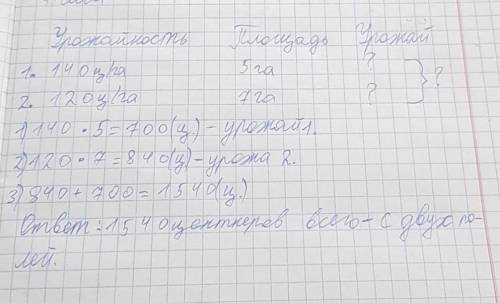 Урожайность Площадь Урожай
1. 140ц/га 5га ?
2. 120ц/га 7га ? } ?
1) 140 · 5 = 700(ц.) - урожай 1.
2) 120 · 7 = 840(ц) - урожа 2.
3) 840 + 700 = 1540(ц.)
Ответ: 1540 центнеров всего - с двух по-
лей.